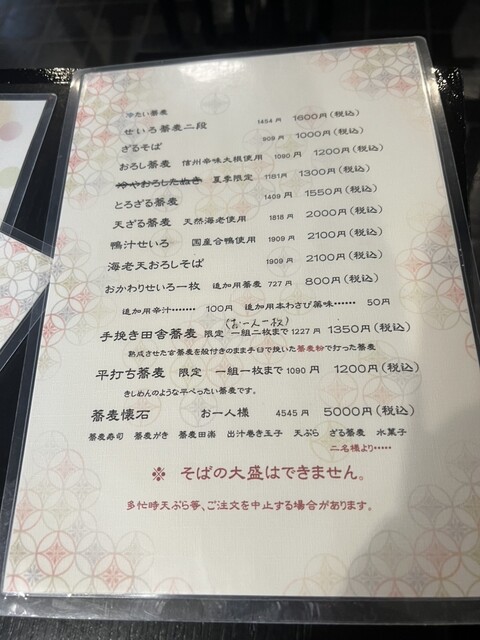 冷たい蕎麦
せいろ蕎麦二段 1454円 1600円(税込)
ざるそば 909円 1000円(税込)
おろし蕎麦 信州辛味大根使用 1090円 1200円(税込)
冷やおろしたぬき 夏季限定 1181円 1300円(税込)
とろざる蕎麦 1409円 1550円(税込)
天ざる蕎麦 天然海老使用 1818円 2000円(税込)
鴨汁せいろ 国産合鴨使用 1909円 2100円(税込)
海老天おろしそば 1909円 2100円(税込)
おかわりせいろ一枚 追加用蕎麦 727円 800円(税込)
追加用辛汁‥‥‥ 100円 追加用本わさび薬味‥‥‥ 50円
(お一人一枚)
手挽き田舎蕎麦 限定 一組二枚まで 1227円 1350円(税込)
熟成させた玄蕎麦を殻付きのまま手臼で挽いた蕎麦粉で打った蕎麦
平打ち蕎麦 限定 一組一枚まで 1090円 1200円(税込)
きしめんのような平べったい蕎麦です。
蕎麦懐石 お一人様 4545円 5000円(税込)
蕎麦寿司 蕎麦がき 蕎麦田楽 出汁巻き玉子 天ぷら ざる蕎麦 水菓子
二名様より‥‥‥
※ そばの大盛はできません。
多忙時天ぷら等、ご注文を中止する場合があります。